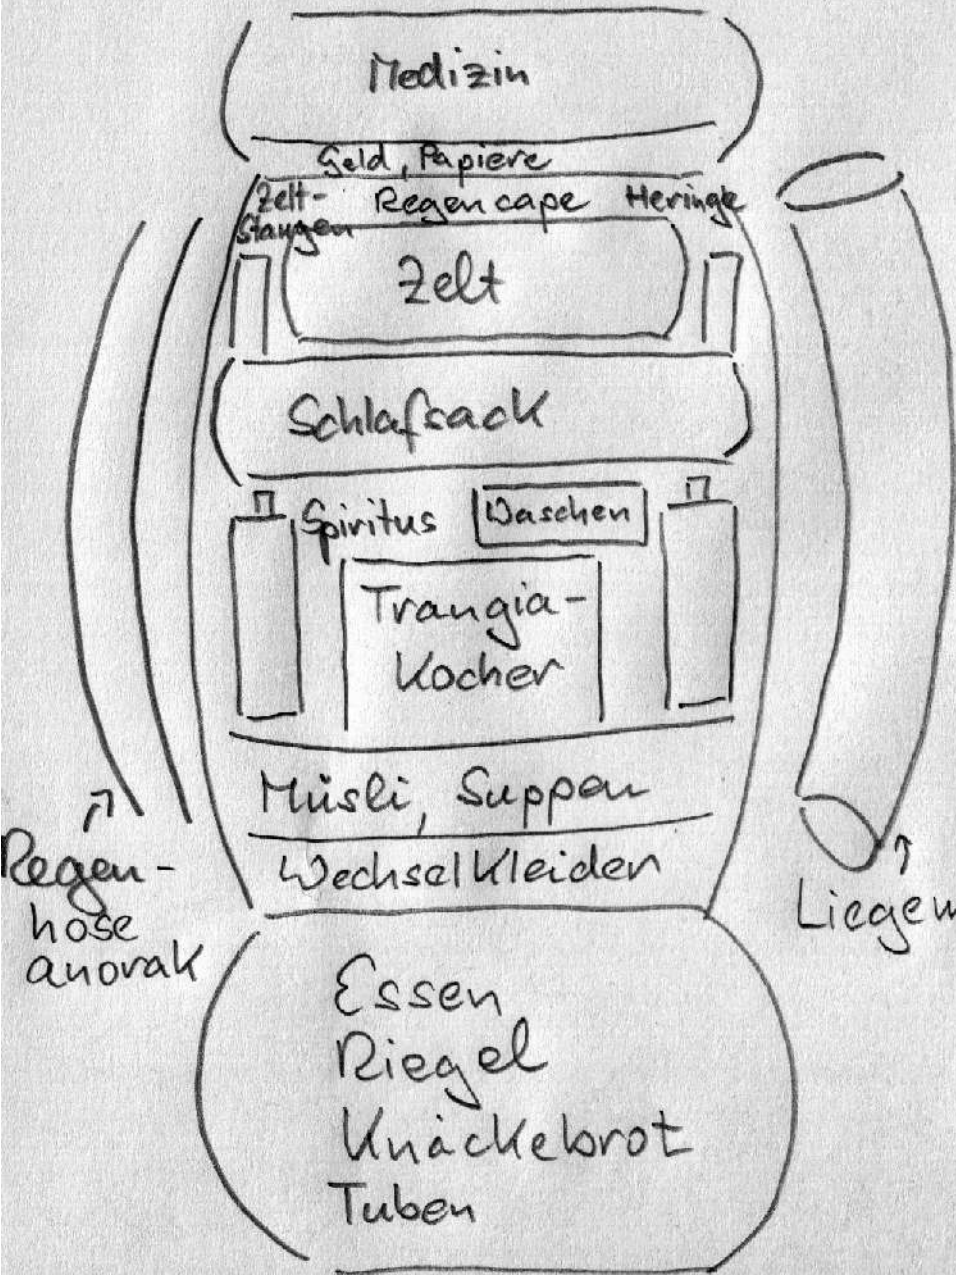 Medizin
Geld, Papiere
Zelt- Regencape Heringe
stangen
Zelt
Schlafsack
Spiritus Waschen
Trangia-
Kocher
Müsli, Suppen
Wechselkleider
Regen-
hose
anorak
Liegem
Essen
Riegel
Knäckebrot
Tuben